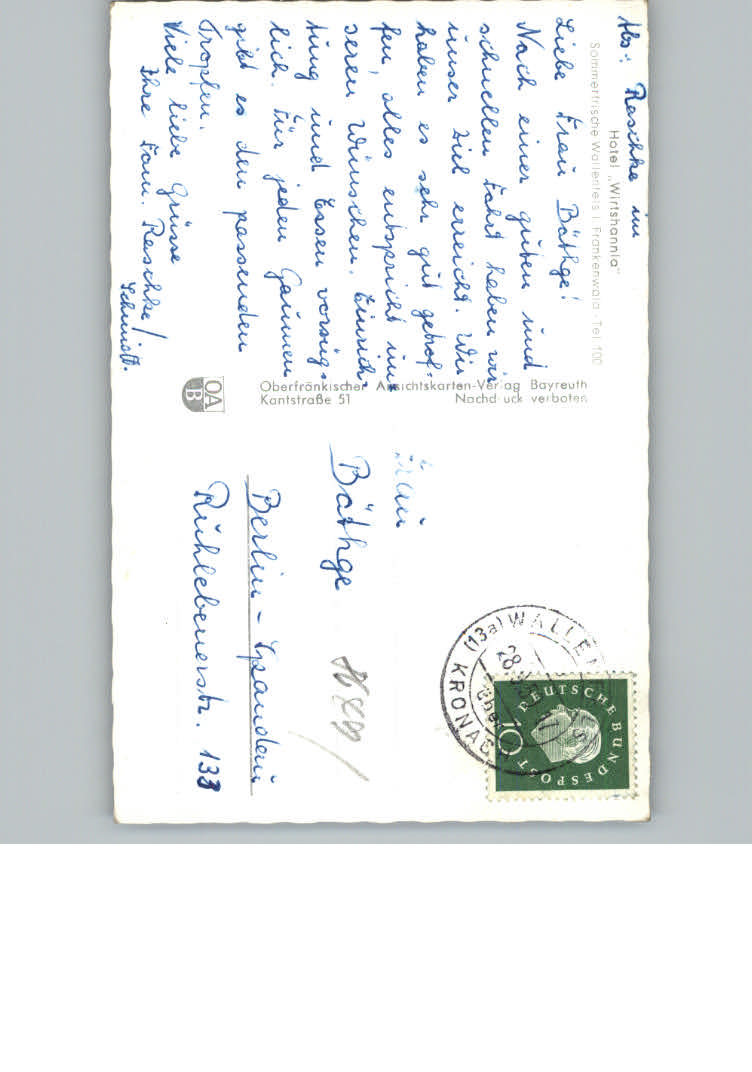 Abs: Raschke im
Hotel „Wirtshannla"
Sommerfrische Wallenfels i. Frankenwald · Tel. 100
Liebe Frau Bäthge!
Nach einer guten und
schnellen Fahrt haben wir
unser Ziel erreicht. Wir
haben es sehr gut getrof-
fen, alles entspricht un-
seren Wünschen. Einrich-
tung und Essen vorzüg-
lich. Für jeden Gaumen
gibt es den passenden
Tropfen.
Viele liebe Grüsse
Ihre Fam. Raschke/
Schmidt.
Oberfränkischer Ansichtskarten-Verlag Bayreuth
Kantstraße 51 Nachdruck verboten
OA
B
(13a) WALLENFELS
28.
über
KRONACH
DEUTSCHE BUNDESPOST
10
Frau
Bäthge
Berlin-Spandau
Ruhlebenerstr. 133